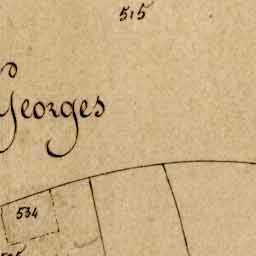 515
Georges
534